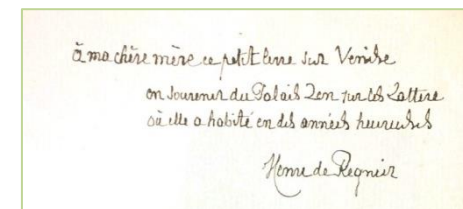 à ma chère mère ce petit livre sur Venise
en souvenir du Palais Zen sur les Zattere
où elle a habité en des années heureuses
Henri de Régnier